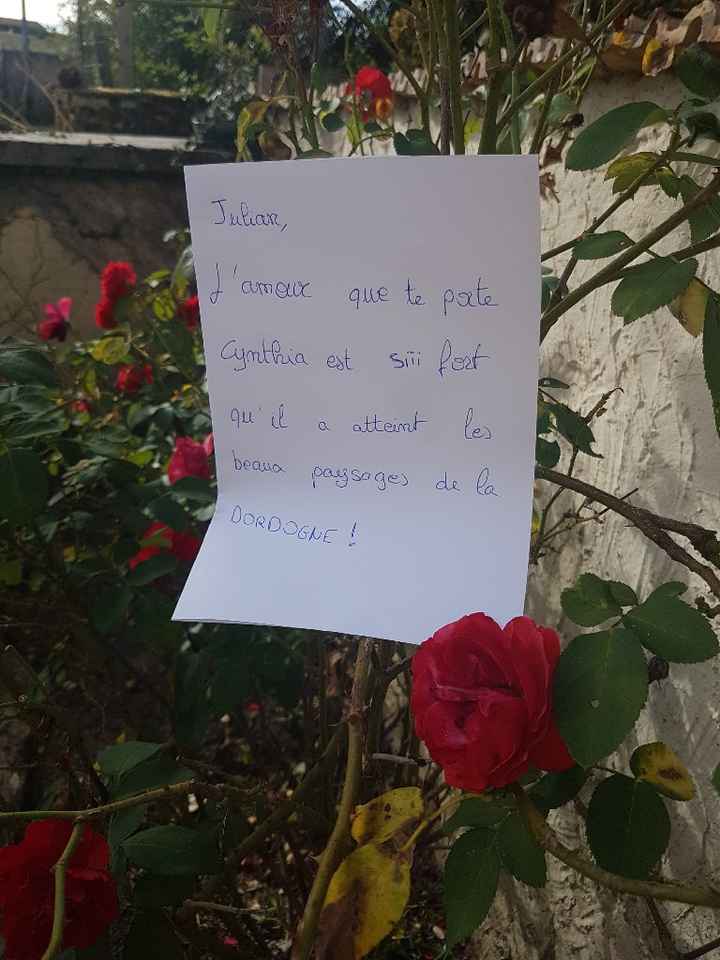 Julian,
L'amour que te porte
Cynthia est siii fort
qu'il a atteint les
beaux paysages de la
DORDOGNE !